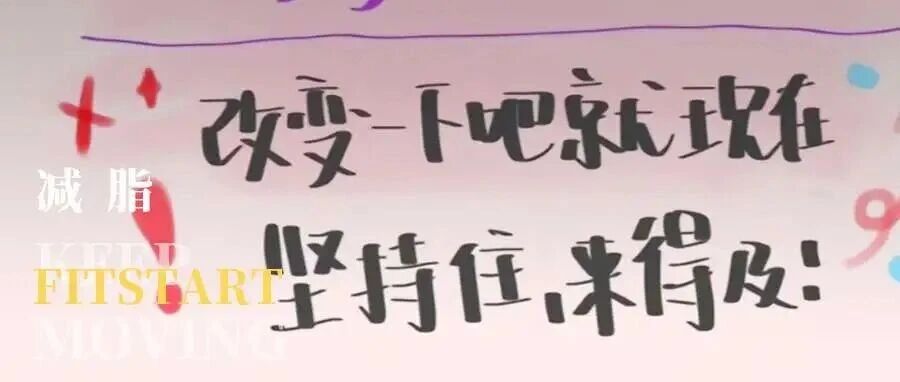 改变一下吧就现在
减脂
坚持住,来得及!
KEEP
FITSTART
MOVING